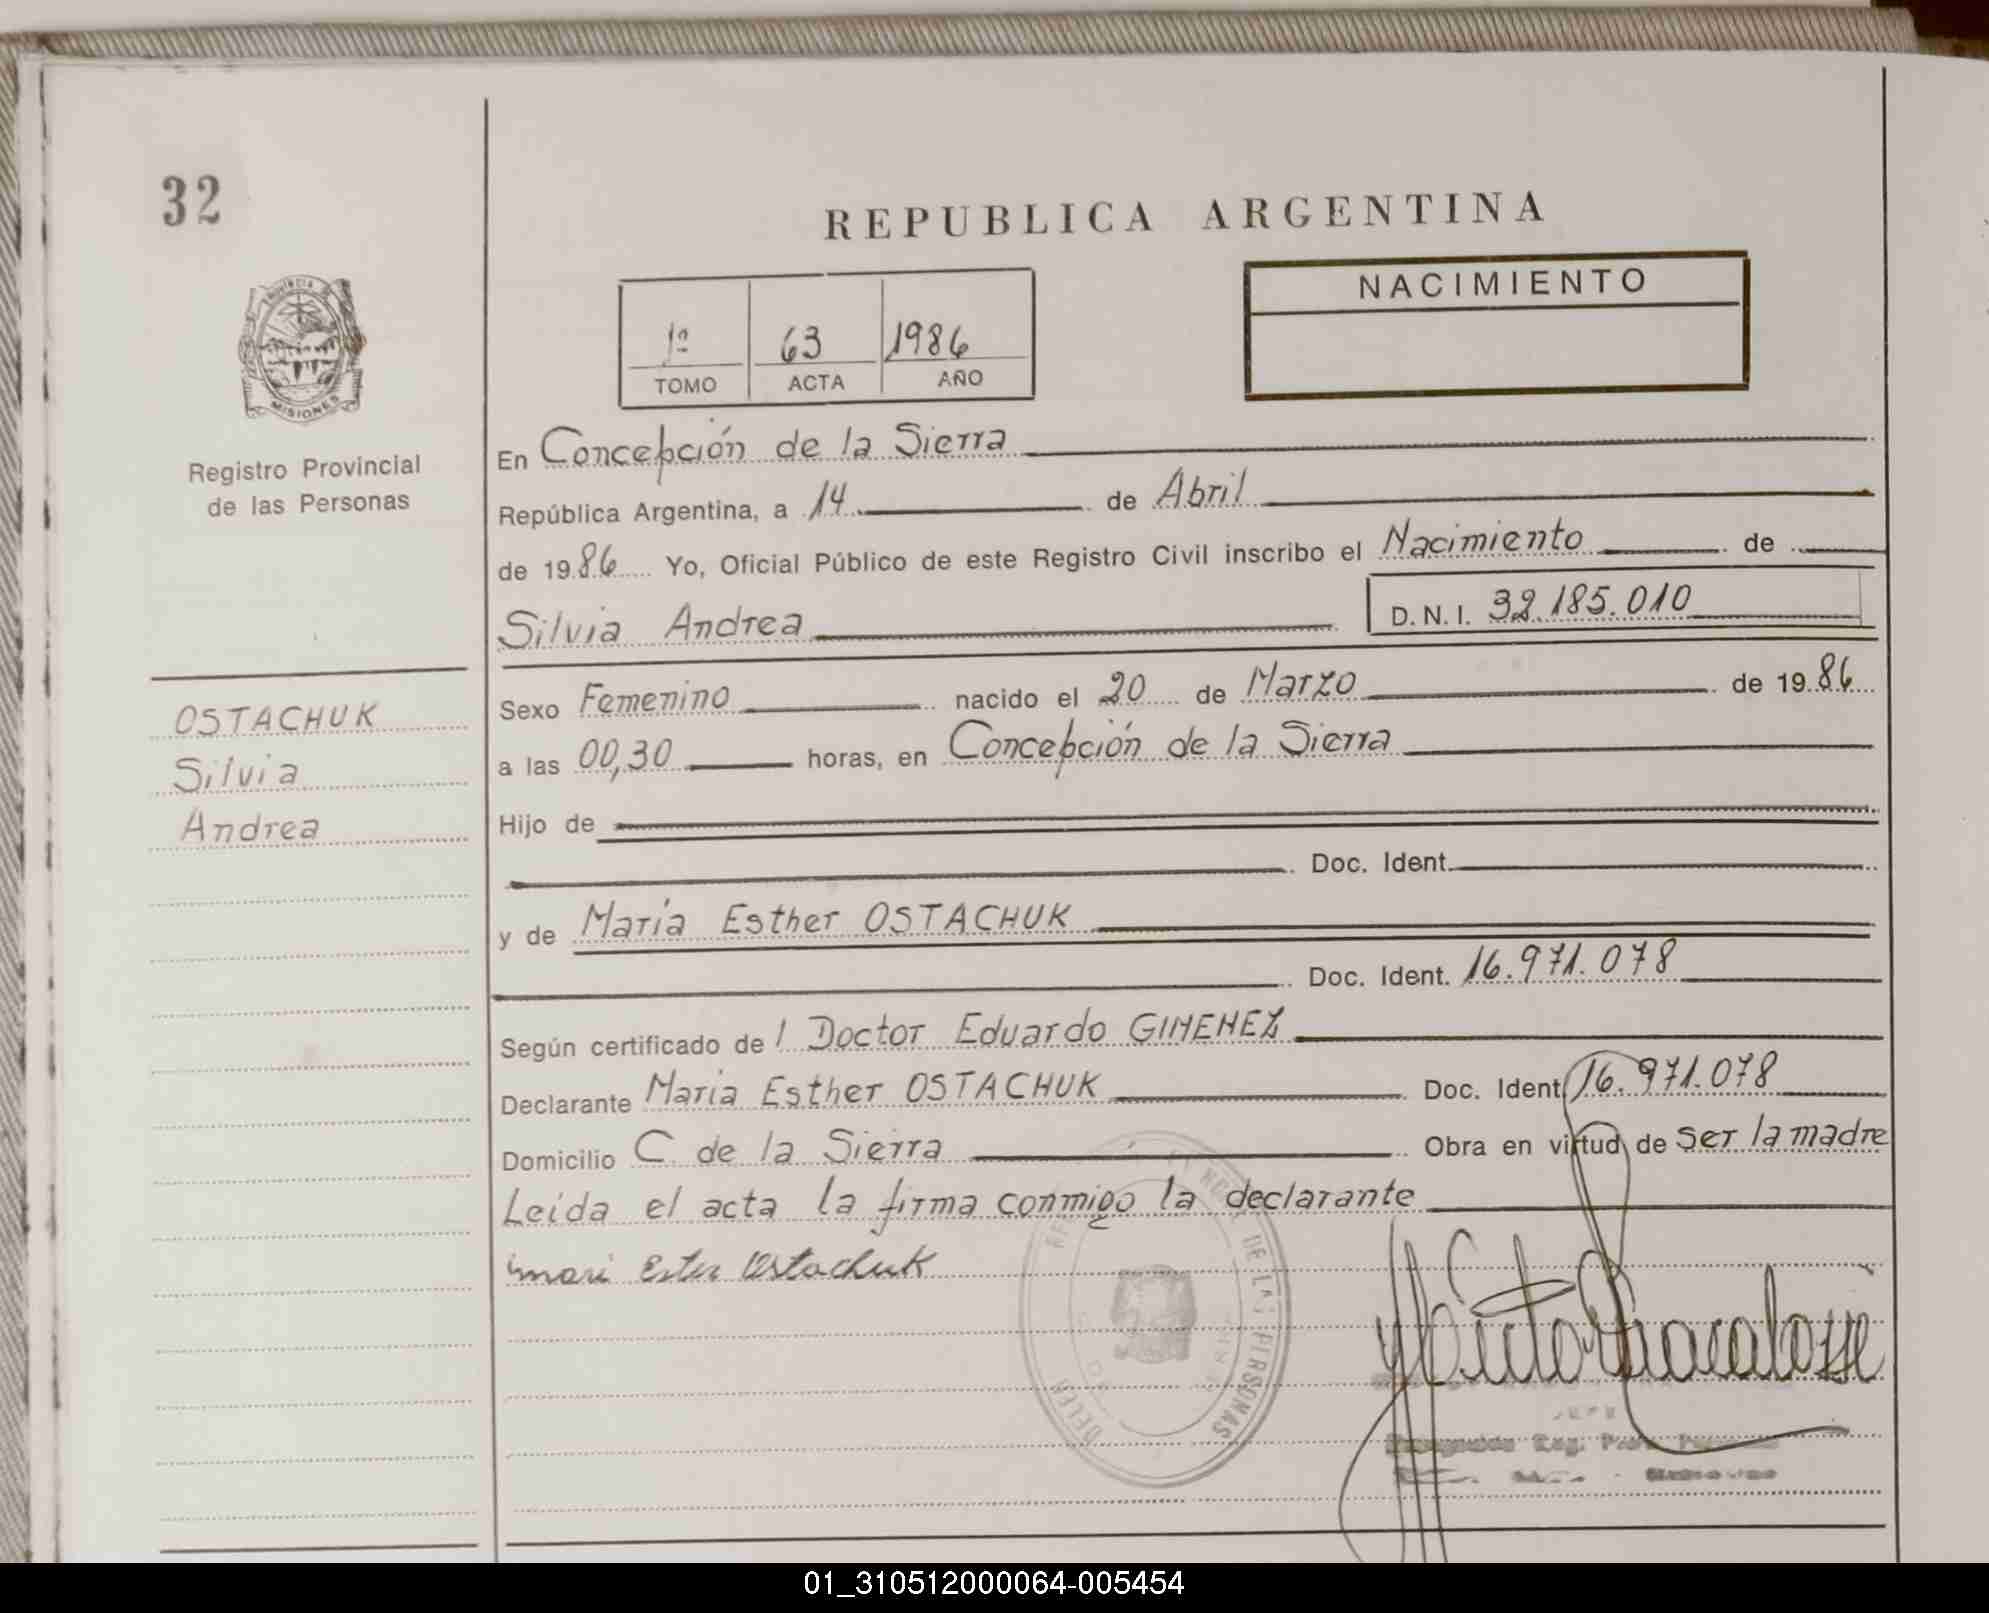 32
REPUBLICA ARGENTINA
NACIMIENTO
1º 63 1986
TOMO ACTA AÑO
PROVINCIA DE
MISIONES
Registro Provincial
de las Personas
En Concepción de la Sierra
República Argentina, a 14 de Abril
de 1986 Yo, Oficial Público de este Registro Civil inscribo el Nacimiento de
Silvia Andrea D.N.I. 32.185.010
OSTACHUK
Silvia
Andrea
Sexo Femenino nacido el 20 de Marzo de 1986
a las 00,30 horas, en Concepción de la Sierra
Hijo de
Doc. Ident.
y de María Esther OSTACHUK
Doc. Ident. 16.971.078
Según certificado de l Doctor Eduardo GIMENEZ
Declarante María Esther OSTACHUK Doc. Ident. 16.971.078
Domicilio C. de la Sierra Obra en virtud de ser la madre
Leída el acta la firma conmigo la declarante
mari Ester Ostachuk
DE LAS PERSONAS
01_310512000064-005454